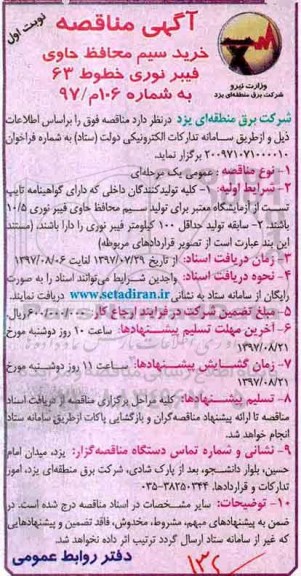 نوبت اول
آگهی مناقصه
خرید سیم محافظ حاوی
فیبر نوری خطوط ۶۳
به شماره ۱۰۶م/۹۷
وزارت نیرو
شرکت برق منطقه‌ای یزد
شرکت برق منطقه‌ای یزد درنظر دارد مناقصه فوق را براساس اطلاعات
ذیل و ازطریق سامانه تدارکات الکترونیکی دولت (ستاد) به شماره فراخوان
۲۰۰۹۷۱۰۷۱۰۰۰۰۱۰ برگزار نماید.
۱- نوع مناقصه : عمومی یک مرحله‌ای
۲- شرایط اولیه: ۱- کلیه تولیدکنندگان داخلی که دارای گواهینامه تایپ
تست از آزمایشگاه معتبر برای تولید سیم محافظ حاوی فیبر نوری ۱۰/۵
باشند. ۲- سابقه تولید حداقل ۱۰۰ کیلومتر فیبر نوری را دارا باشند. (مستند
این بند عبارت است از تصویر قراردادهای مربوطه)
۳- زمان دریافت اسناد: از تاریخ ۱۳۹۷/۰۷/۲۹ لغایت ۱۳۹۷/۰۸/۰۶
۴- نحوه دریافت اسناد: واجدین شرایط می‌توانند اسناد را به صورت
رایگان از سامانه ستاد به نشانی www.setadiran.ir دریافت نمایند.
۵- مبلغ تضمین شرکت در فرایند ارجاع کار ۶۰۰/۰۰۰/۰۰۰ ریال.
۶- آخرین مهلت تسلیم پیشنهادها: ساعت ۱۰ روز دوشنبه مورخ
۱۳۹۷/۰۸/۲۱
۷- زمان گشایش پیشنهادها: ساعت ۱۱ روز دوشنبه مورخ
۱۳۹۷/۰۸/۲۱
۸- تسلیم پیشنهادها: کلیه مراحل برگزاری مناقصه از دریافت اسناد
مناقصه تا ارائه پیشنهاد مناقصه‌گران و بازگشایی پاکات ازطریق سامانه ستاد
انجام خواهد شد.
۹- نشانی و شماره تماس دستگاه مناقصه‌گزار: یزد، میدان امام
حسین، بلوار دانشجو، بعد از پارک شادی، شرکت برق منطقه‌ای یزد، امور
تدارکات و قراردادها. ۳۸۲۵۰۳۴۴-۰۳۵
۱۰- توضیحات: سایر مشخصات در اسناد مناقصه درج شده است. در
ضمن به پیشنهادهای مبهم، مشروط، مخدوش، فاقد تضمین و پیشنهادهایی
که غیر از سامانه ستاد ارسال گردد ترتیب اثر داده نخواهد شد.
دفتر روابط عمومی